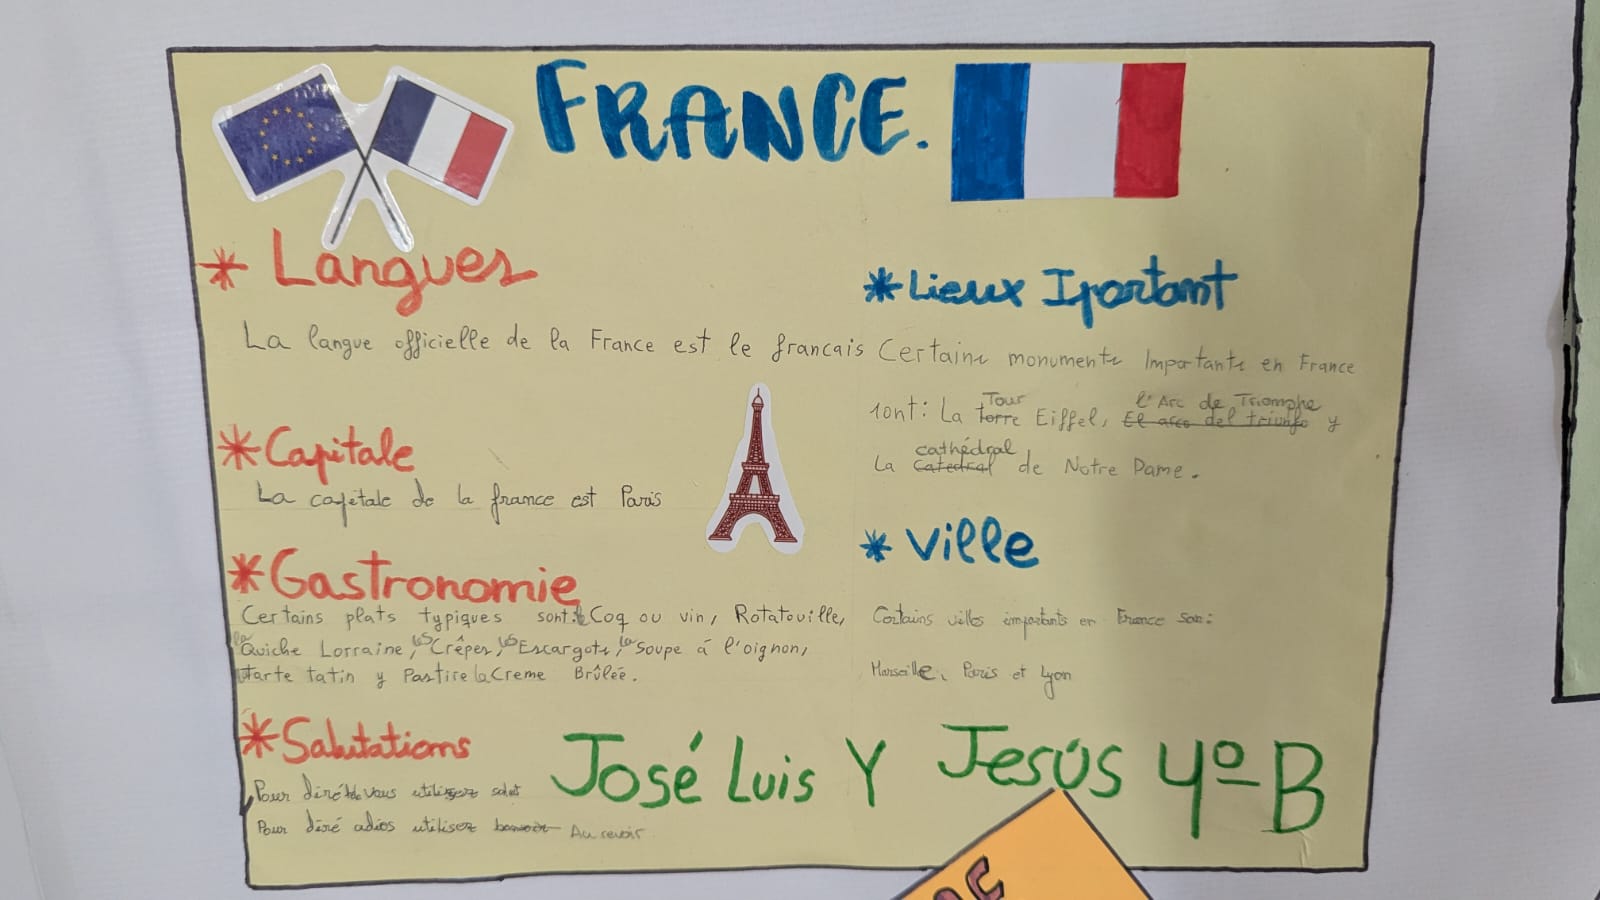 FRANCE.
* Langues
La langue officielle de la France est le francais
* Capitale
La capitale de la france est Paris
* Gastronomie
Certains plats typiques sont: le Coq ou vin, Rotatouille,
la Quiche Lorraine, les Crêpes, les Escargots, la Soupe á l'oignon,
tarte tatin y Pastire la Creme Brûleé.
* Salutations
Pour diré vous utilisez salut
Pour diré adios utilisez bonsoir Au revoir
* Lieux Iportant
Certains monuments Importants en France
sont: La torre Tour Eiffel, El arco del triunfo l'Arc de Triomphe y
La Catedral cathédral de Notre Dame.
* Ville
Certains villes importants en France son:
Marseille, Paris et Lyon
José Luis Y Jesús 4º B